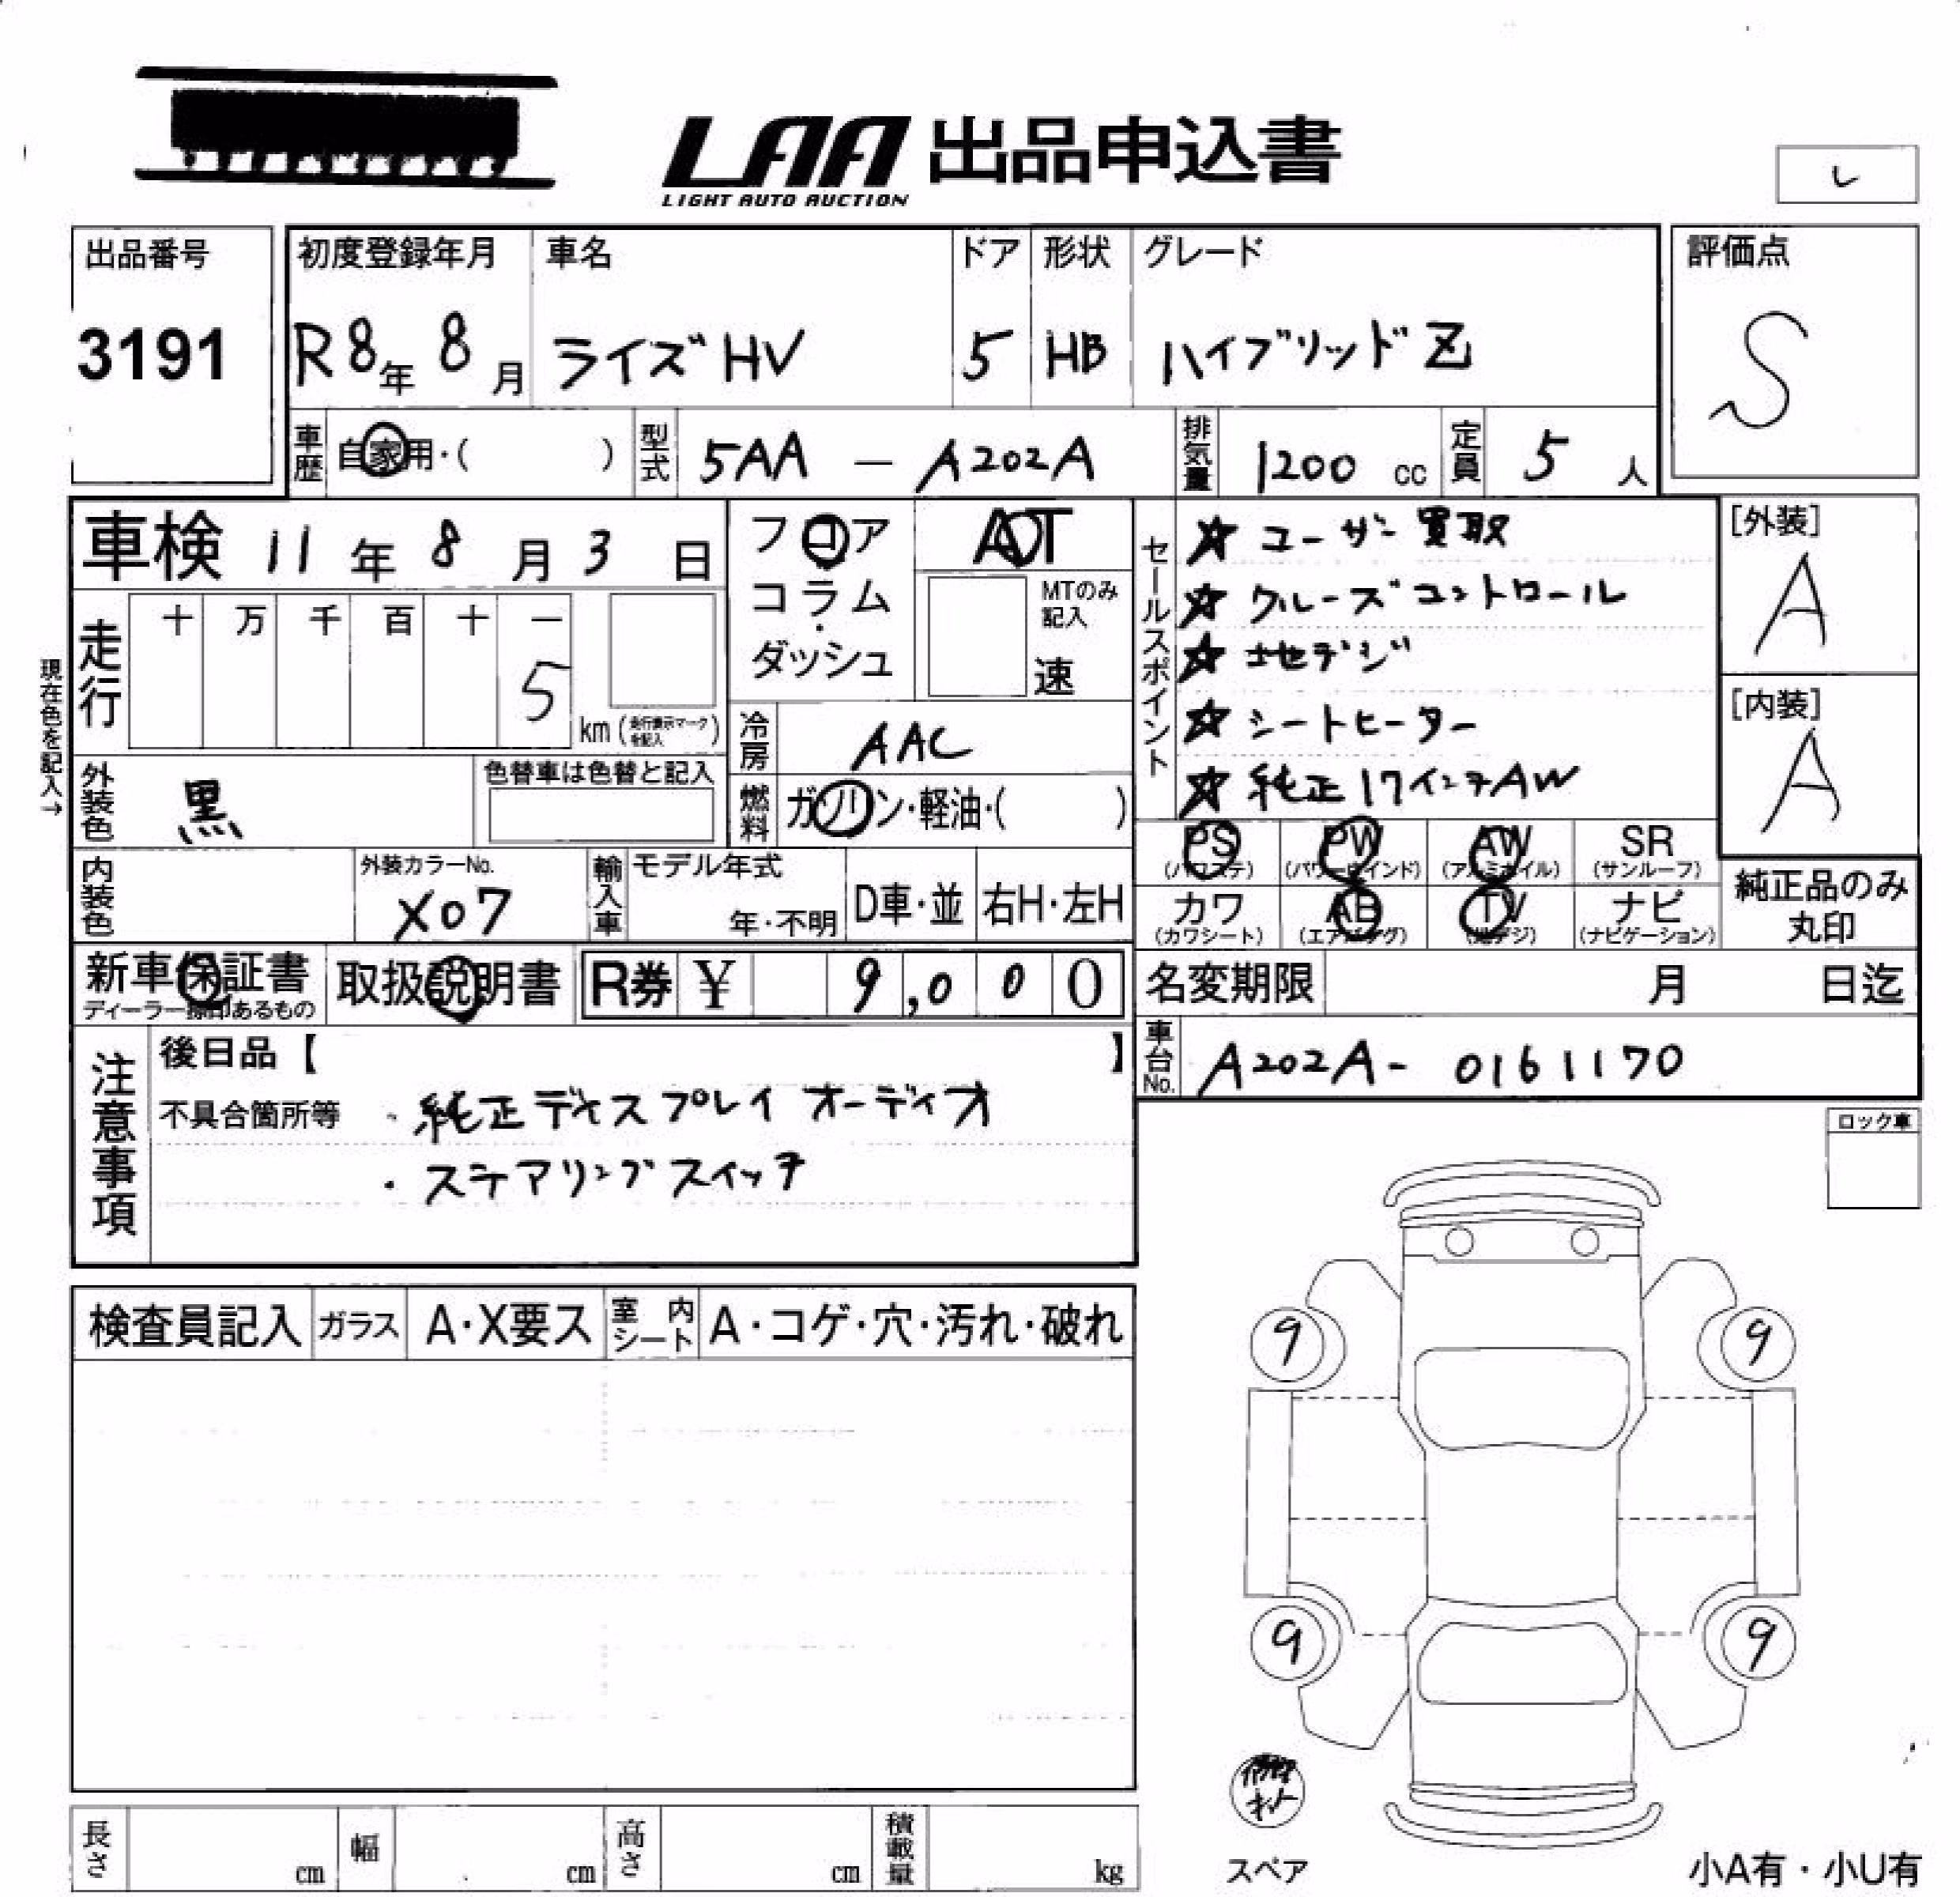 LAA 出品申込書
LIGHT AUTO AUCTION
レ
出品番号
3191
初度登録年月
R8年 8月
車名
ライズHV
ドア
5
形状
HB
グレード
ハイブリッドZ
評価点
S
車歴 自家用・( )
型式 5AA - A202A
排気量 1200 cc
定員 5 人
車検 11年 8月 3日
フロア
コラム・
ダッシュ
AT
MTのみ記入
速
現在色を記入→
走行 十 万 千 百 十 一
5
km (走行表示マークを記入)
冷房 AAC
外装色 黒
色替車は色替と記入
燃料 ガソリン・軽油・( )
内装色
外装カラーNo.
X07
輸入車
モデル年式
年・不明
D車・並
右H・左H
セールスポイント
☆ ユーザー買取
☆ クルーズコントロール
☆ 地デジ
☆ シートヒーター
☆ 純正17インチAW
[外装]
A
[内装]
A
PS (パワステ)
PW (パワーウインド)
AW (アルミホイル)
SR (サンルーフ)
カワ (カワシート)
AB (エアバッグ)
TV (地デジ)
ナビ (ナビゲーション)
純正品のみ丸印
新車保証書
ディーラー捺印あるもの
取扱説明書
R券 ¥ 9,000
名変期限 月 日迄
車台No. A202A- 0161170
注意事項
後日品【 】
不具合箇所等
・純正ディスプレイオーディオ
・ステアリングスイッチ
ロック車
検査員記入
ガラス A・X要ス
室内シート A・コゲ・穴・汚れ・破れ
9 9
9 9
スペア
小A有・小U有
長さ cm
幅 cm
高さ cm
積載量 kg